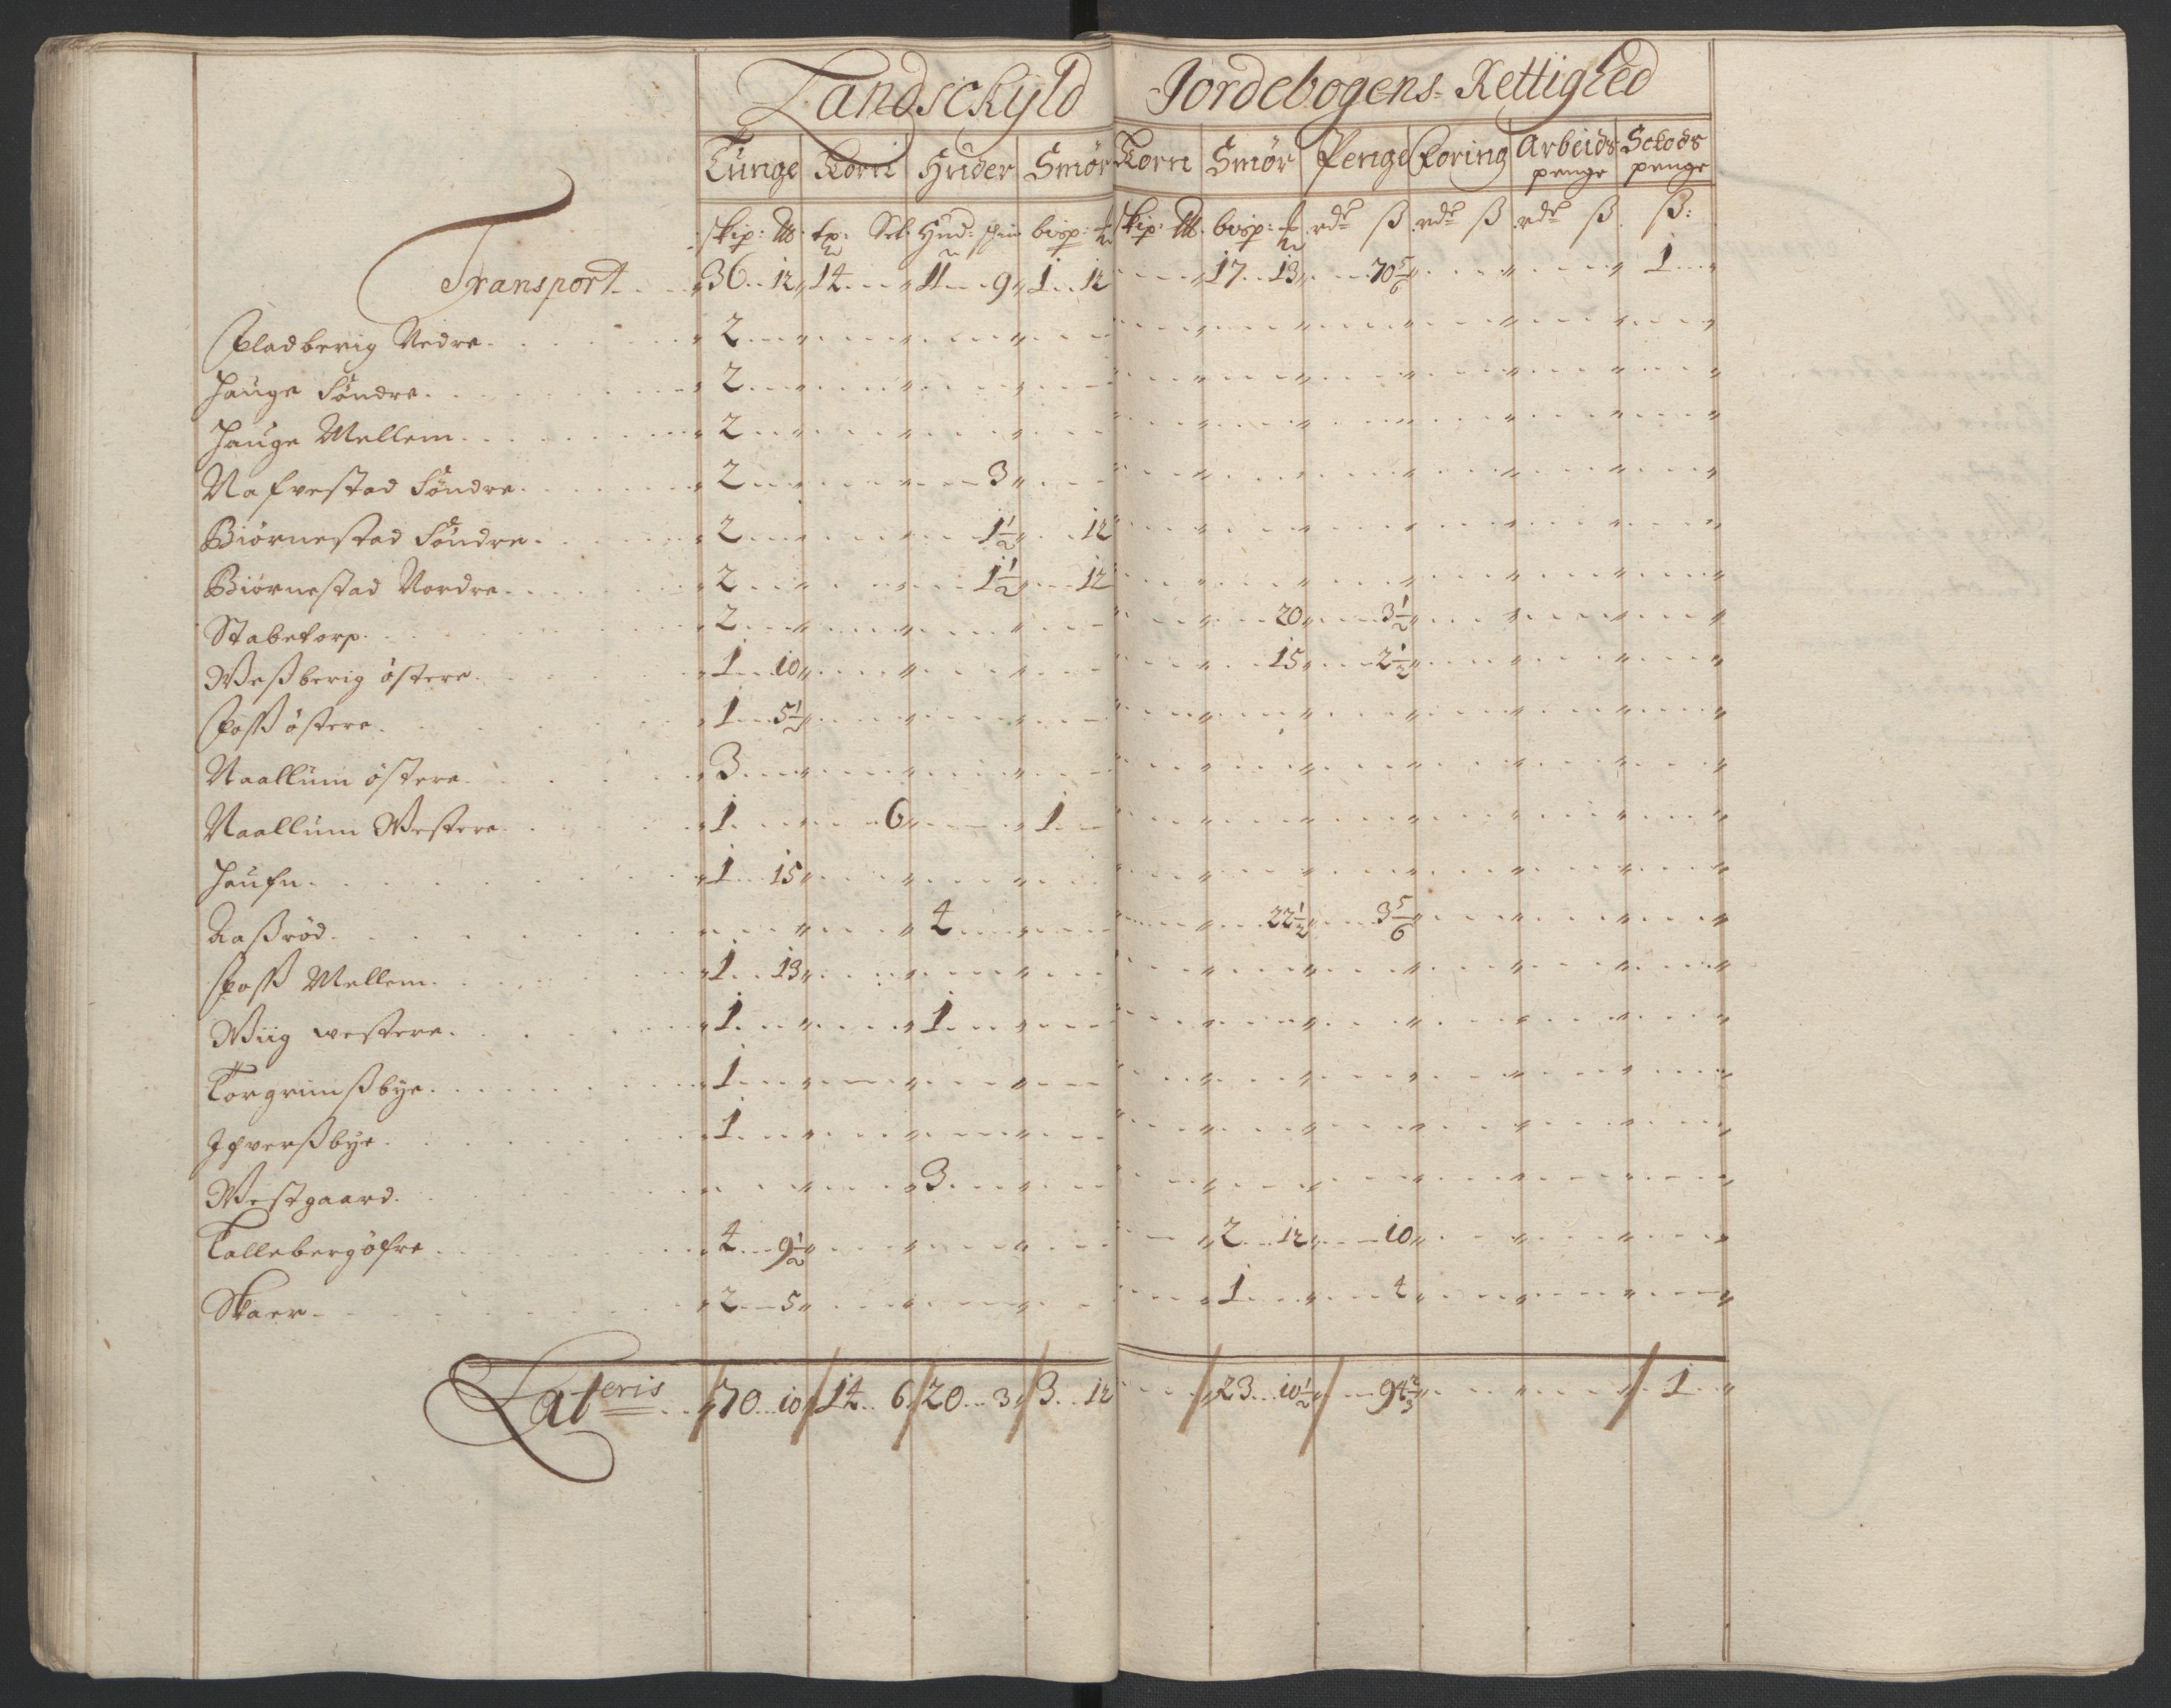 Landschÿld Jordebogens Rettighed
Tunge Korn Huder Smør Korn Smør Penge Foring Arbeids penge Schods penge
skip: tp: Set: Hud: skin bisp: skip: bisp: rdr ß rdr ß rdr ß ß:
Transport 36 12 14 11 9 1 12 17 13 70 5/6 1
Fladberig Nedre 2
Hauge Söndre 2
Hauge Mellem 2
Nafvestad Söndre 2 3
Biörnestad Söndre 2 1 1/2 12
Biörnestad Nordre 2 1 1/2 12
Stabetorp 2 20 3 1/2
Weßberig östere 1 10 15 2 1/2
Foß östere 1 5 1/2
Naallum östere 3
Naallum Westere 1 6 1
Haufn 1 15
Aaßröd 4 22 1/2 3 5/6
Foß Mellem 1 13
Wiig westere 1 1
Torgrimßbye 1
Ifverßbye 1
Westgaard 3
Talleberg öfre 4 9 1/2 2 12 10
Skaer 2 5 1 4
Lateris 70 10 14 6 20 3 3 12 23 10 1/2 94 2/3 1